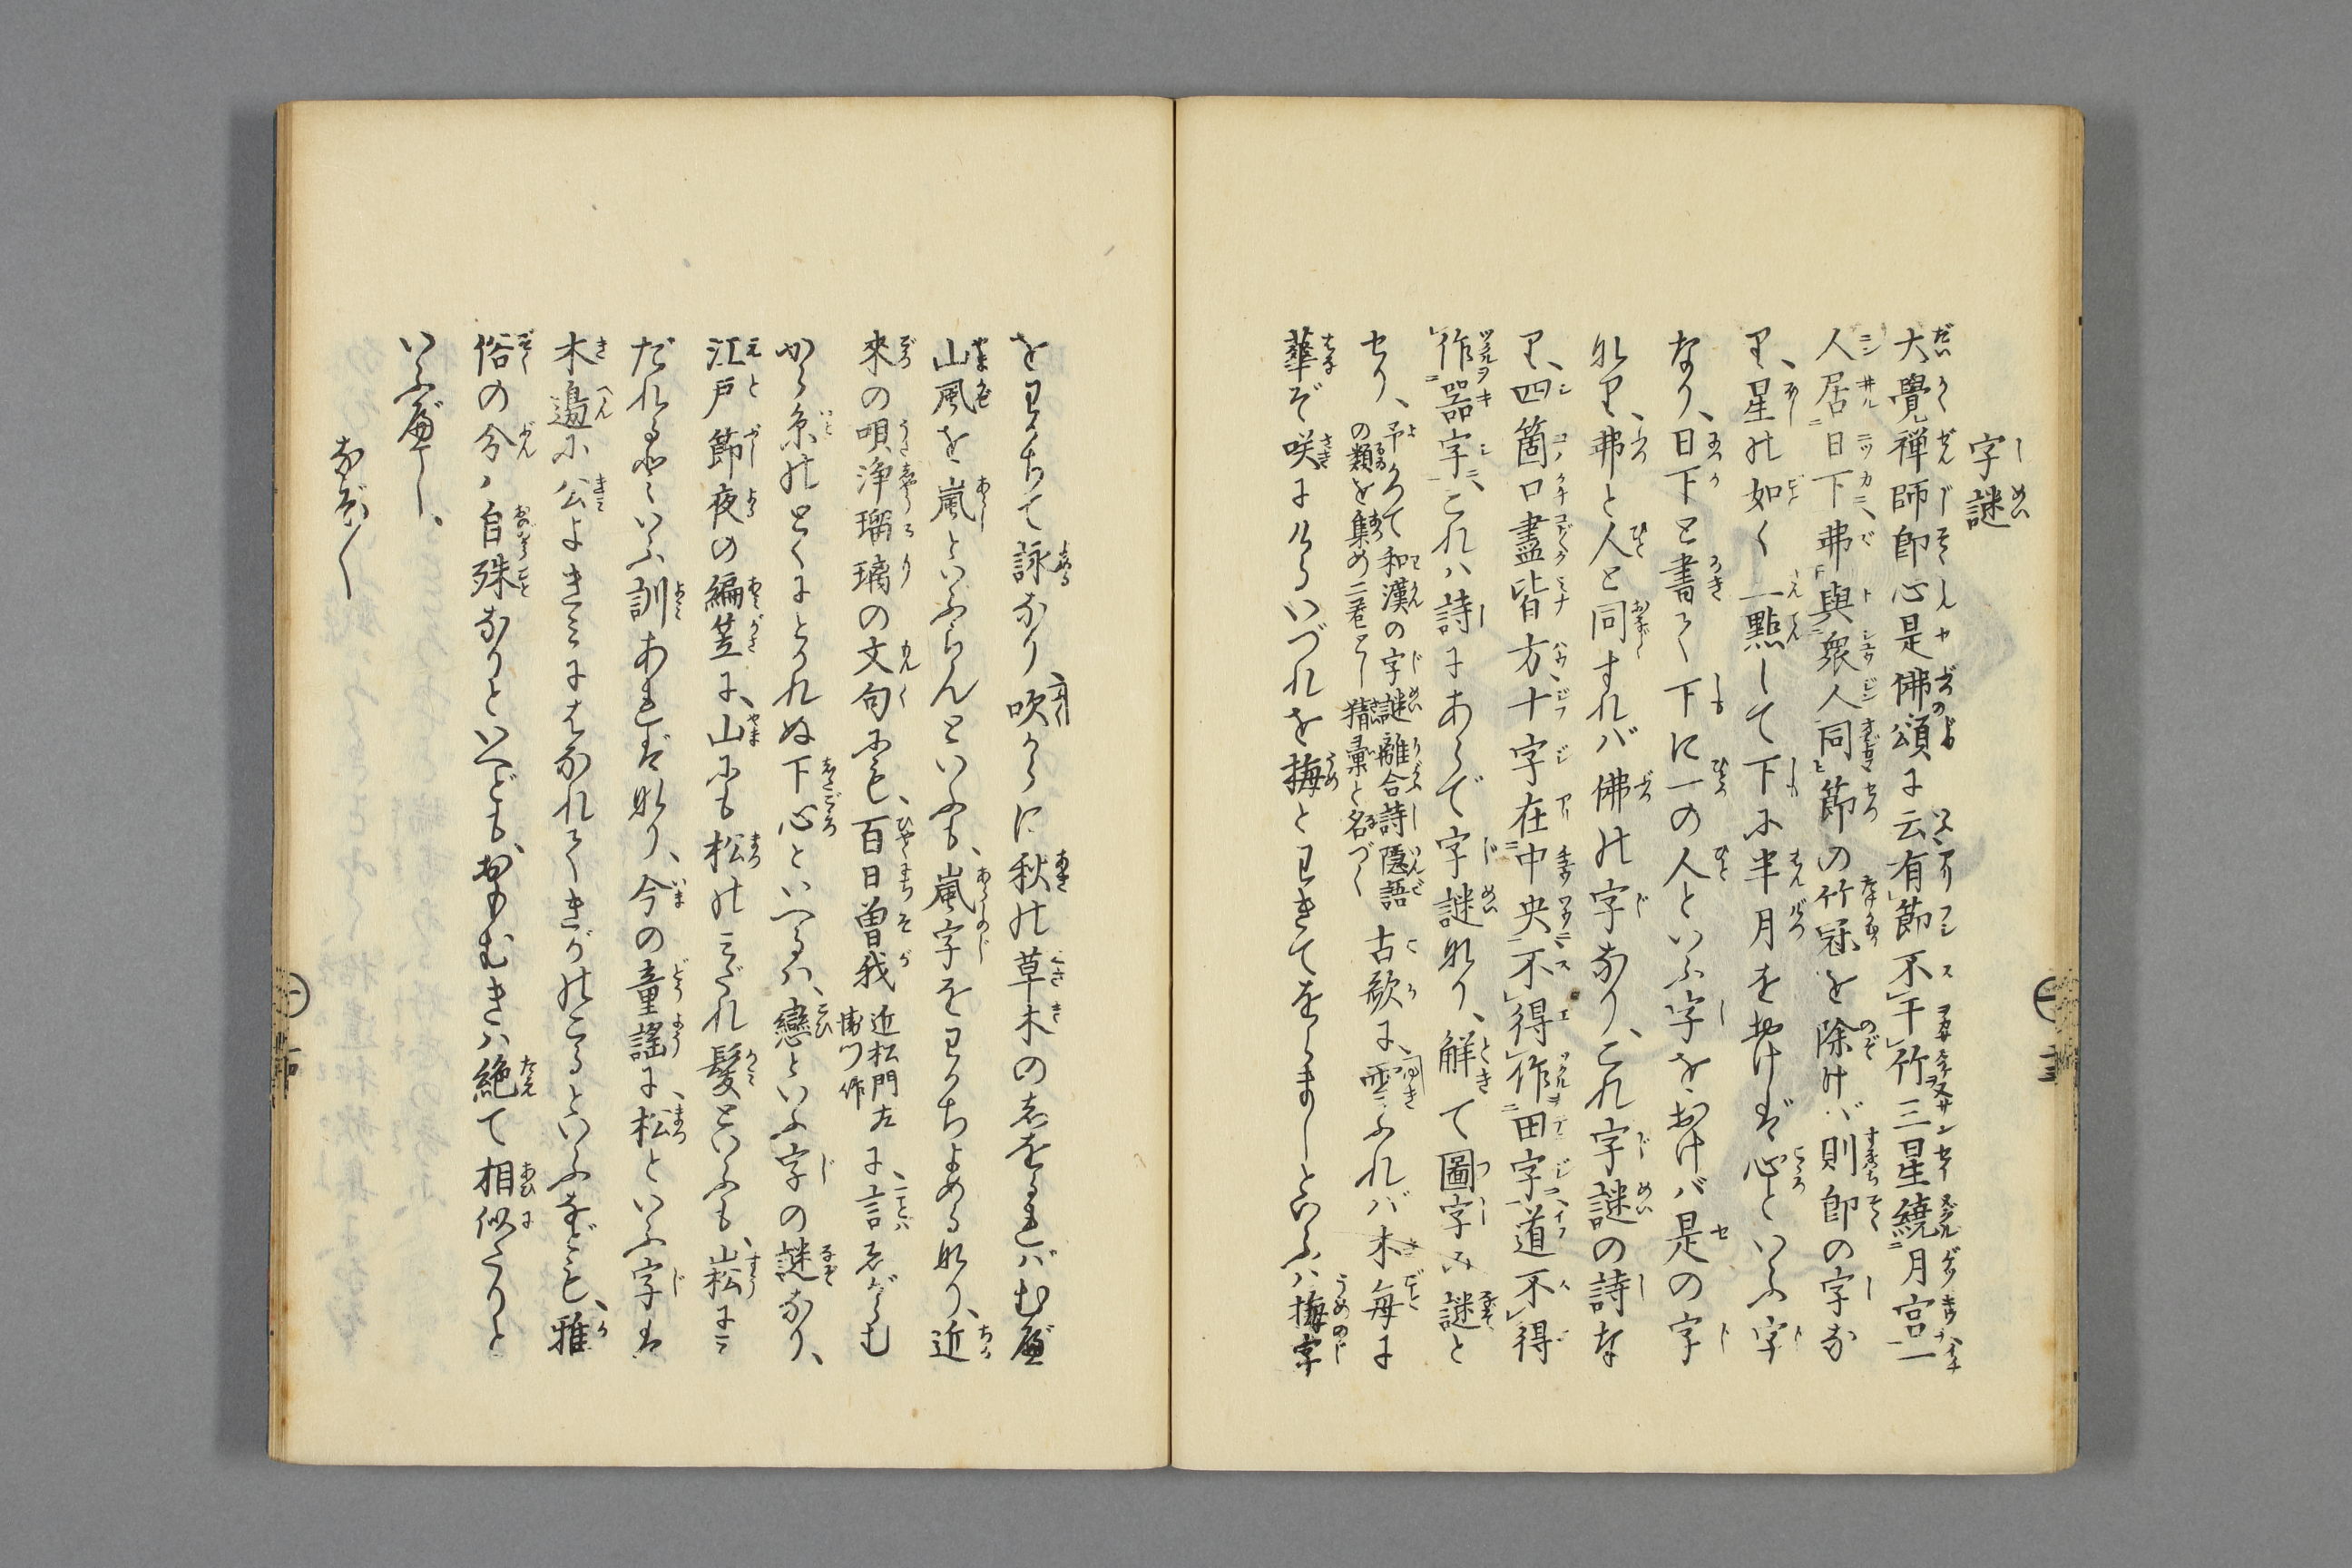 字謎
大覺禅師即心是佛頌に云有節不干竹三星繞月宮一
人居日下弗與衆人同節の竹冠を除けバ則即の字な
り、星の如く一點して下に半月をおけば心といふ字
なり、日下と書て下に一の人といふ字をおけバ是の字
なり、弗と人と同すれバ佛の字なり、これ字謎の詩な
り、四箇口盡皆方十字在中央不得作田字道不得
作器字これハ詩にあらで字謎なり、解て圖字の謎と
せり、予かつて和漢の字謎離合詩隠語
の類を集め二巻とし猜彙と名づく
古歌に、雪ふれバ木毎に
華ぞ咲にけるいづれを梅とわきてをらましといふハ梅字
をわかちて詠なり吹からに秋の草木のしをるればむべ
山風を嵐といふらんといふも、嵐字をわかちよめるなり、近
来の唄浄瑠璃の文句にも、百日曽我
近松門左
衛門作
に、言しがらむ
から糸のとくにとかれぬ下心といへるハ、戀といふ字の謎なり、
江戸節夜の編笠に、山にも松のみだれ髪といふも、崧にミ
だれるといふ訓あればなり、今の童謡に、松といふ字は
木邉に公よきミにはなれてきがのこるといふなども、雅
俗の分ハ自殊なりといへども、おもむきハ絶て相似たりと
いふべし、
なぞ〱